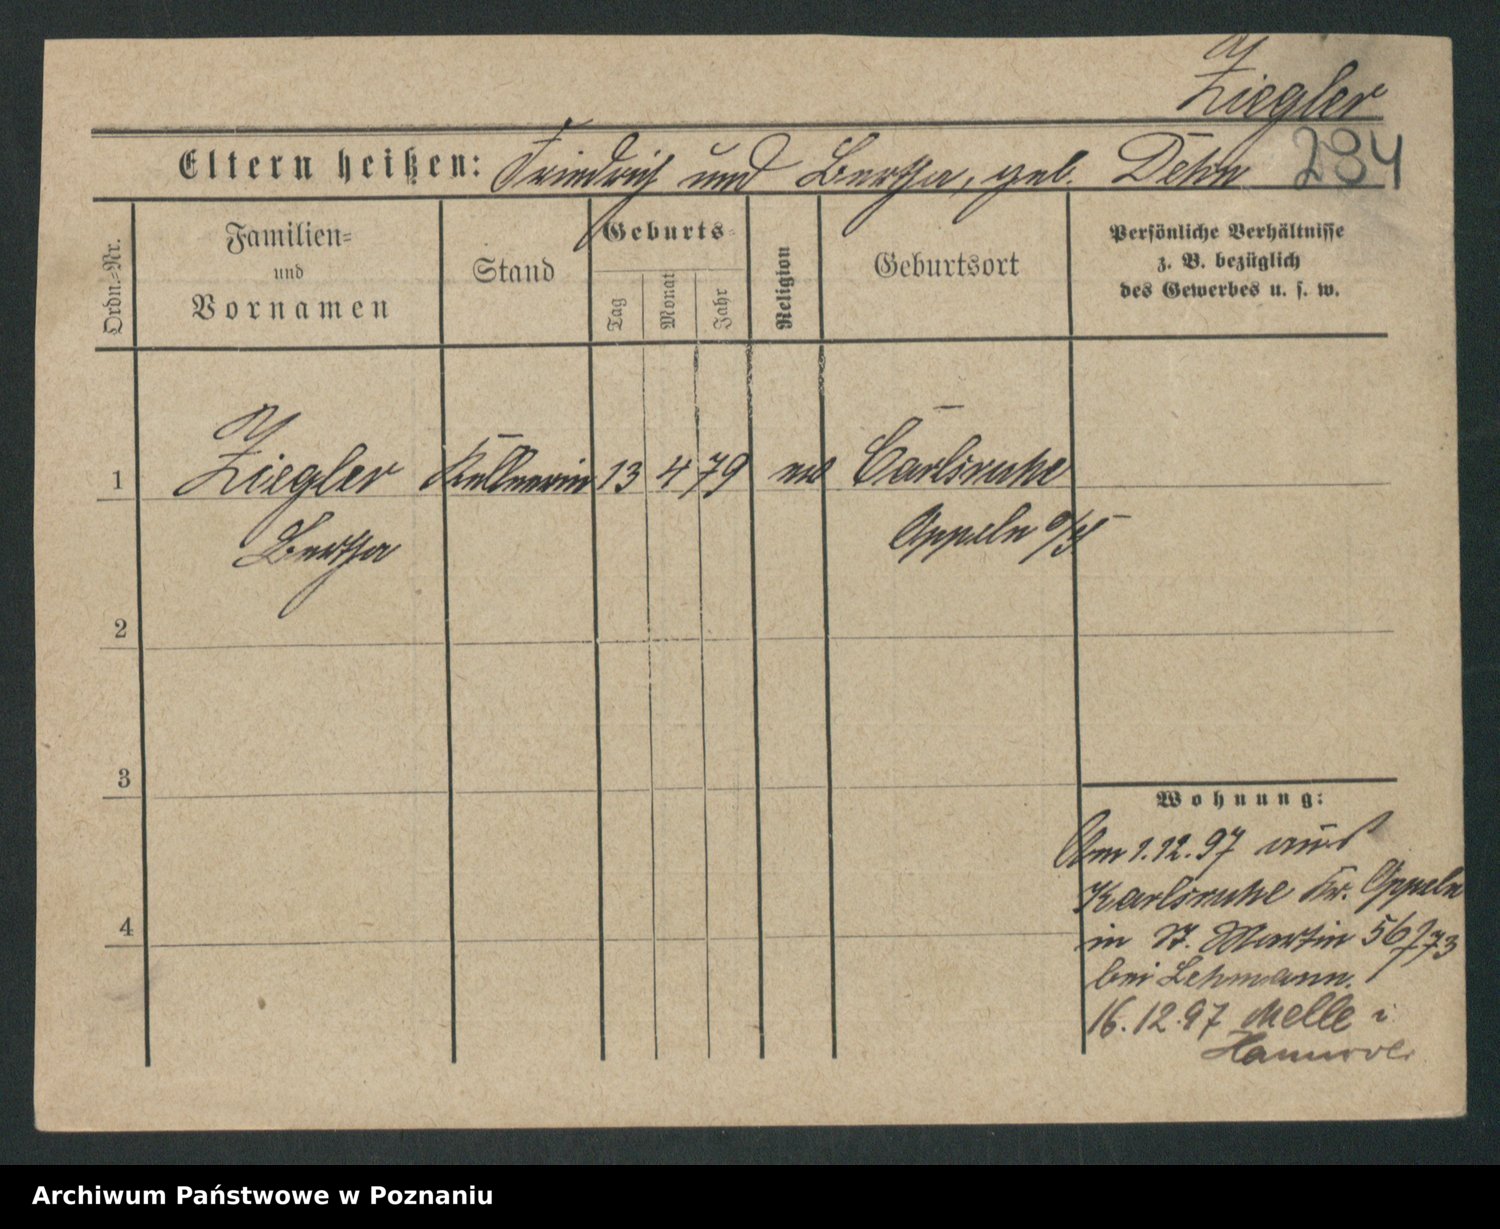 Ziegler
Eltern heißen: Friedrich und Bertha, geb. Dehn 284
Ordn.=Nr.
Familien=
und
Vornamen
Stand
Geburts=
Tag
Monat
Jahr
Religion
Geburtsort
Persönliche Verhältnisse
z. B. bezüglich
des Gewerbes u. s. w.
1 Ziegler Kellnerin 13 4 79 ev Carlsruhe
Bertha Oppeln o/S
2
3
4
Wohnung:
Am 1.12.97 aus
Karlsruhe Kr. Oppeln
in St. Martin 56
bei Lehmann.
16.12.97 Melle i
Hannover
Archiwum Państwowe w Poznaniu